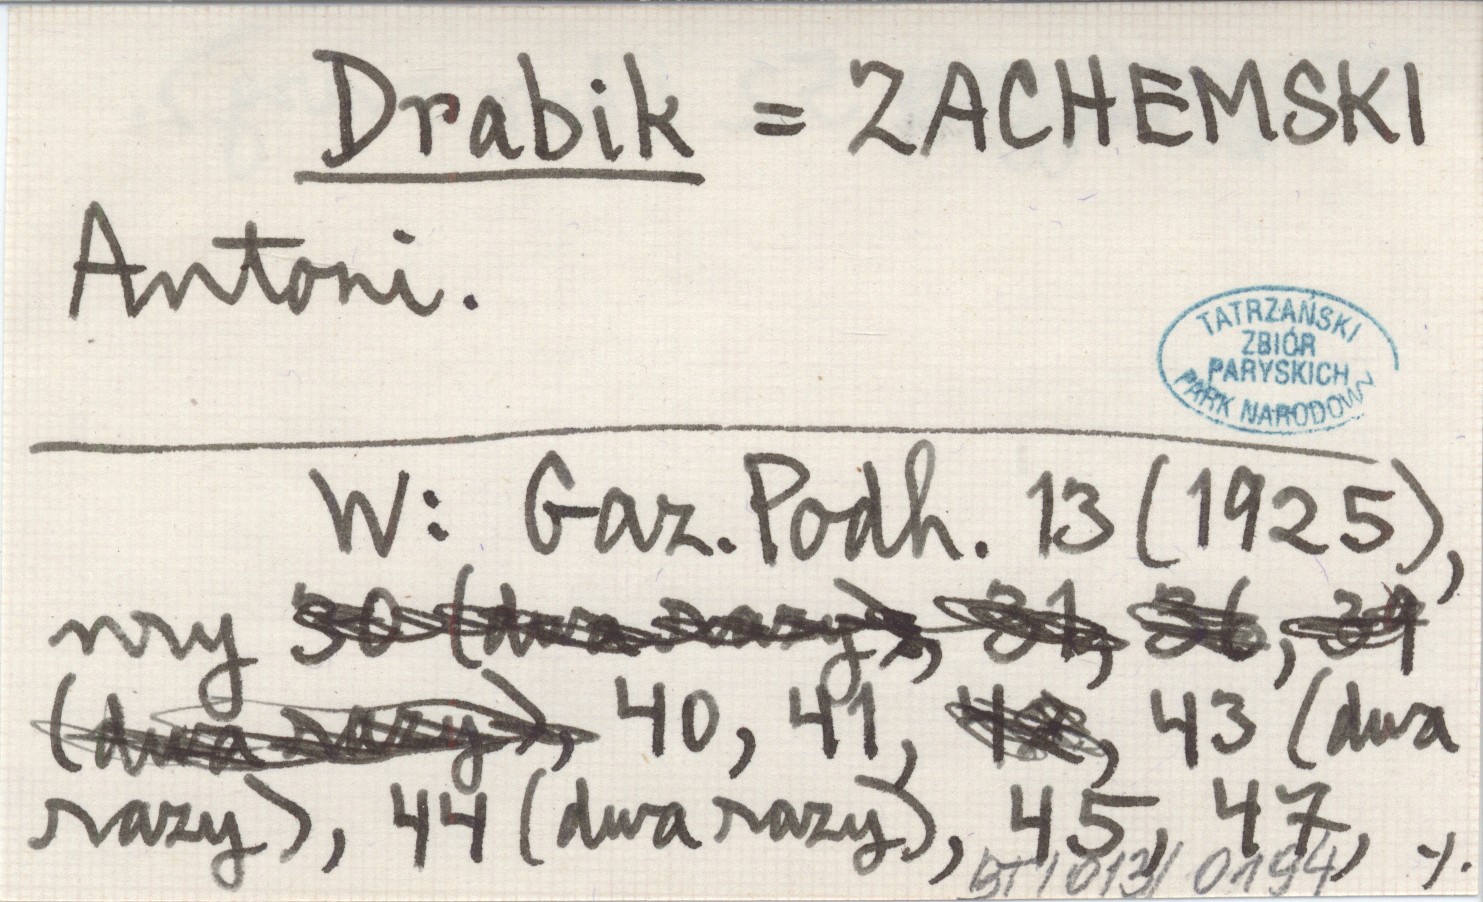 Drabik = ZACHEMSKI
Antoni.
TATRZAŃSKI
ZBIÓR
PARYSKICH
PARK NARODOWY
W: Gaz. Podh. 13 (1925),
nry 30 (dwa razy), 31, 36, 39
(dwa razy), 40, 41, 42, 43 (dwa
razy), 44 (dwa razy), 45, 47, ./.
BT/013/0194